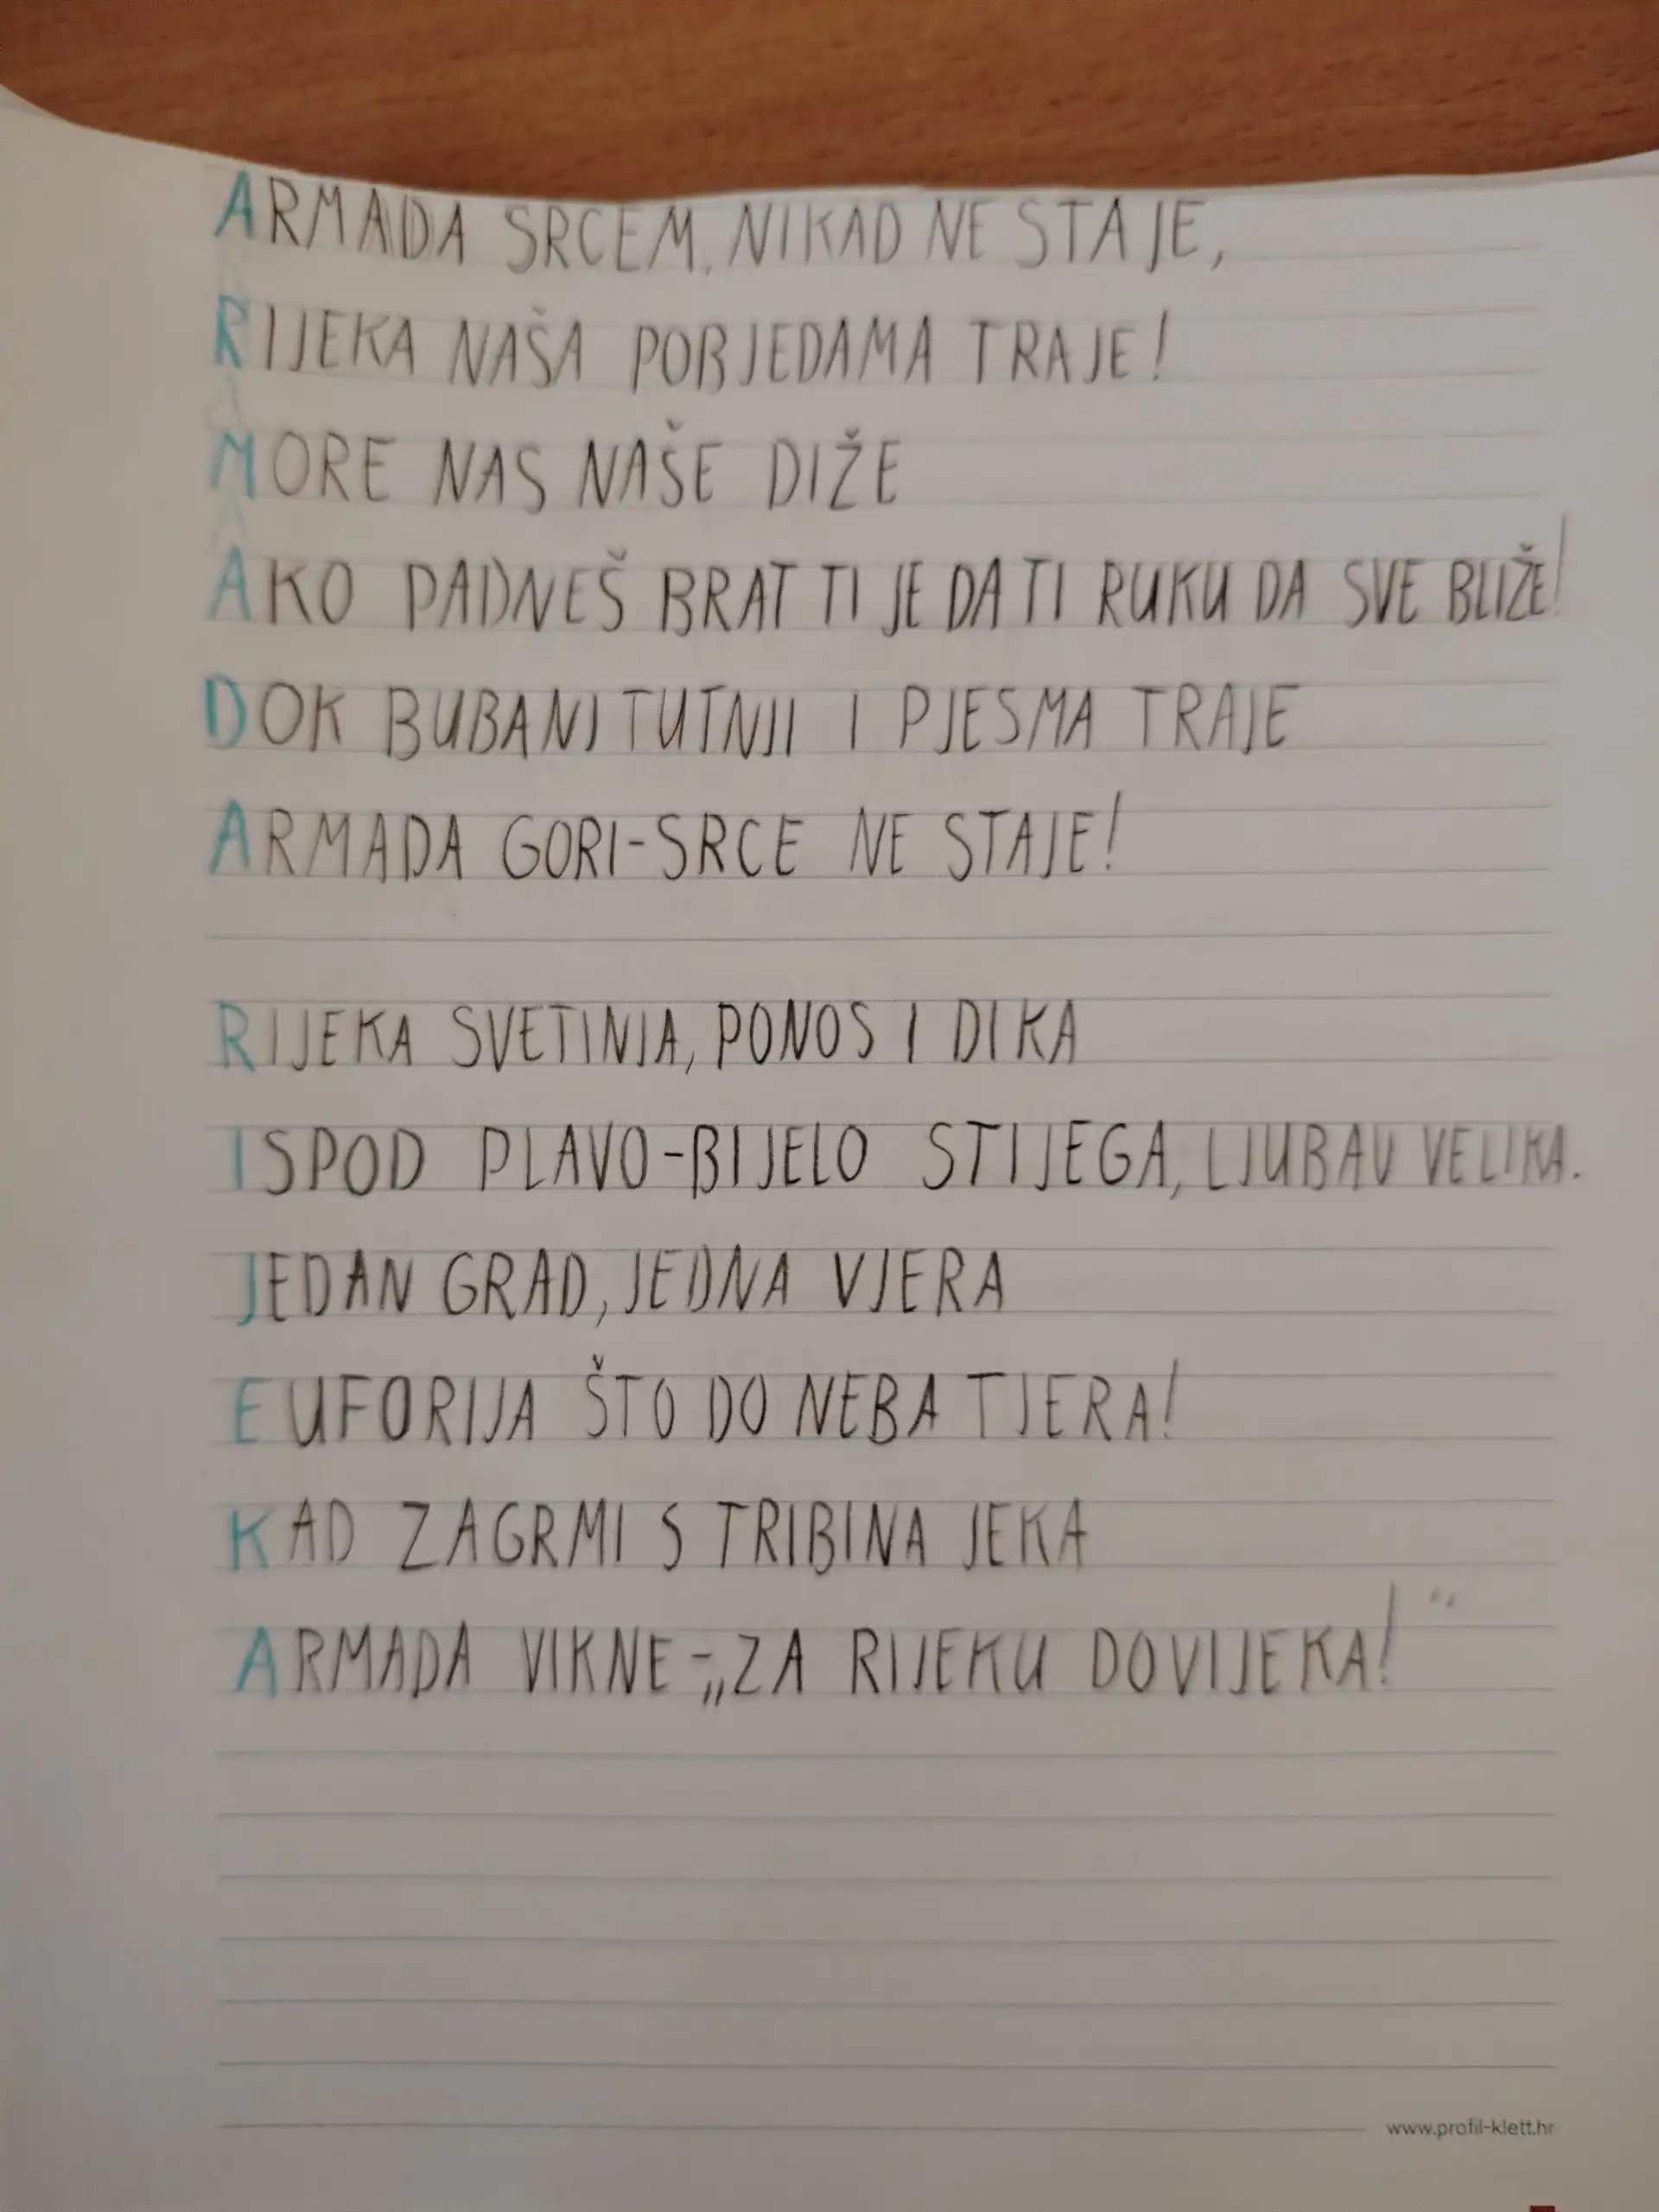 ARMADA SRCEM, NIKAD NE STAJE,
RIJEKA NAŠA POBJEDAMA TRAJE!
MORE NAS NAŠE DIŽE
AKO PADNEŠ BRAT TI JE DA TI RUKU DA SVE BLIŽE!
DOK BUBANJ TUTNJI I PJESMA TRAJE
ARMADA GORI-SRCE NE STAJE!
RIJEKA SVETINJA, PONOS I DIKA
ISPOD PLAVO-BIJELO STIJEGA, LJUBAV VELIKA.
JEDAN GRAD, JEDNA VJERA
EUFORIJA ŠTO DO NEBA TJERA!
KAD ZAGRMI S TRIBINA JEKA
ARMADA VIKNE-„ZA RIJEKU DOVIJEKA!“
www.profil-klett.hr